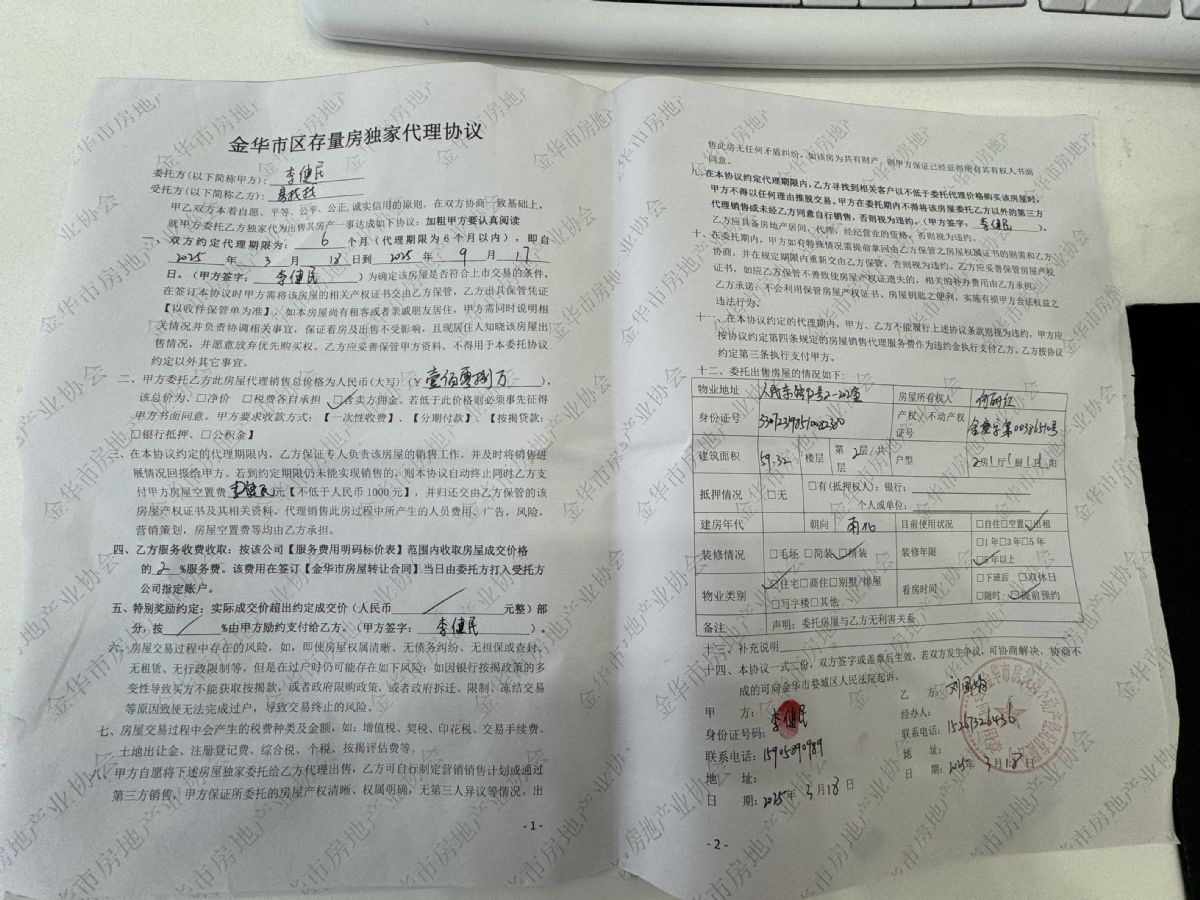 金华市区存量房独家代理协议
委托方(以下简称甲方)：李健民
受托方(以下简称乙方)：
甲乙双方本着自愿、平等、公平、公正,诚实信用的原则，在双方协商一致基础上，
就甲方委托乙方独家代为出售其房产一事达成如下协议：加粗甲方要认真阅读
一、双方约定代理期限为：6个月（代理期限为6个月以内），即自
2025年3月18日到2025年9月17
日。（甲方签字：李健民）为确定该房屋是否符合上市交易的条件，
在签订本协议时甲方需将该房屋的相关产权证书交由乙方保管，乙方出具保管凭证
【以收件保管单为准】，如本房屋尚有租客或者亲戚朋友居住，甲方需同时说明相
关情况并负责协调相关事宜，保证看房及出售不受影响，且现居住人知晓该房屋出
售情况，并愿意放弃优先购买权。乙方应妥善保管甲方资料，不得用于本委托协议
约定以外其它事宜。
二、甲方委托乙方此房屋代理销售总价格为人民币(大写)（￥壹佰零捌万），
该总价为、□净价 □税费各自承担 □含卖方佣金。若低于此价格则必须事先征得
甲方书面同意。甲方要求收款方式：【一次性收费】、【分期付款】、【按揭贷款：
□银行抵押、□公积金】
三、在本协议约定的代理期限内，乙方保证专人负责该房屋的销售工作，并及时将销售进
展情况回报给甲方。若到约定期限仍未能实现销售的，则本协议自动终止同时乙方支
付甲方房屋空置费 元【不低于人民币1000元】，并归还交由乙方保管的该
房屋产权证书及其相关资料。代理销售此房过程中所产生的人员费用、广告，风险，
营销策划，房屋空置费等均由乙方承担。
四、乙方服务收费收取：按该公司【服务费用明码标价表】范围内收取房屋成交价格
的 2 %服务费。该费用在签订【金华市房屋转让合同】当日由委托方打入受托方
公司指定账户。
五、特别奖励约定：实际成交价超出约定成交价（人民币 元整）部
分，按 %由甲方励约支付给乙方。（甲方签字：李健民）。
六、房屋交易过程中存在的风险，如，即使房屋权属清晰、无债务纠纷、无担保或查封，
无租赁、无行政限制等，但是在过户时仍可能存在如下风险：如因银行按揭政策的多
变性导致买方不能获取按揭款，或者政府限购政策，或者政府拆迁、限制、冻结交易
等原因致使无法完成过户，导致交易终止的风险。
七、房屋交易过程中会产生的税费种类及金额，如：增值税、契税、印花税、交易手续费、
土地出让金、注册登记费、综合税、个税、按揭评估费等。
八、甲方自愿将下述房屋独家委托给乙方代理出售，乙方可自行制定营销销售计划或通过
第三方销售，甲方保证所委托的房屋产权清晰、权属明确，无第三人异议等情况，出
- 1 -
售此房无任何矛盾纠纷，如该房为共有财产，则甲方保证已经征得所有其有权人书面
同意。
九、在本协议约定代理期限内,乙方寻找到相关客户以不低于委托代理价格购买该房屋时，
甲方不得以任何理由推脱交易。甲方在委托期内不得将该房屋委托乙方以外的第三方
代理销售或未经乙方同意自行销售，否则视为违约。（甲方签字：李健民）。
乙方应具备房地产居间、代理、经纪营业的资格，否则视为违约。
十、在委托期内，甲方如有特殊情况需提前拿回由乙方保管之房屋权属证书的则需和乙方
协商，并在规定期限内重新交由乙方保管，否则视为违约。乙方应妥善保管房屋产权
证书，如应乙方保管不善致使房屋产权证遗失的，相关的补办费用由乙方承担。
乙方承诺：不会利用保管房屋产权证书、房屋钥匙之便利，实施有损甲方合法权益之
违法行为。
十一、在本协议约定的代理期内，甲方、乙方不能履行上述协议条款则视为违约，甲方应
按协议约定第四条规定的房屋销售代理服务费作为违约金执行支付乙方。乙方按协议
约定第三条执行支付甲方。
十二、委托出售房屋的情况如下：
物业地址 房屋所有权人
身份证号 产权\不动产权证号
建筑面积 59.32 楼层 第2层/共 层 户型 2房1厅1厨1卫 阳
抵押情况 □无 □有(抵押权人)：银行：
个人或单位：
建房年代 朝向 南北 目前使用状况 □自住□空置□出租
装修情况 □毛坯 □简装 □精装 装修年限 □1年□3年□5年
□5年以上
物业类别 □住宅□商住□别墅/排屋 看房时间 □下班后 □双休日
□写字楼□其他 □随时 □提前预约
备注 声明：委托房屋与乙方无利害关系
十三、补充说明
十四、本协议一式二份，双方签字或盖章后生效，若双方发生争议，可协商解决，协商不
成的可向金华市婺城区人民法院起诉。
甲 方：李健民 乙 方：
身份证号码： 经办人：
联系电话：15905890989 联系电话：15267326436
地 址： 地 址：
日 期：2025年3月18日 日 期：2025年3月18日
- 2 -